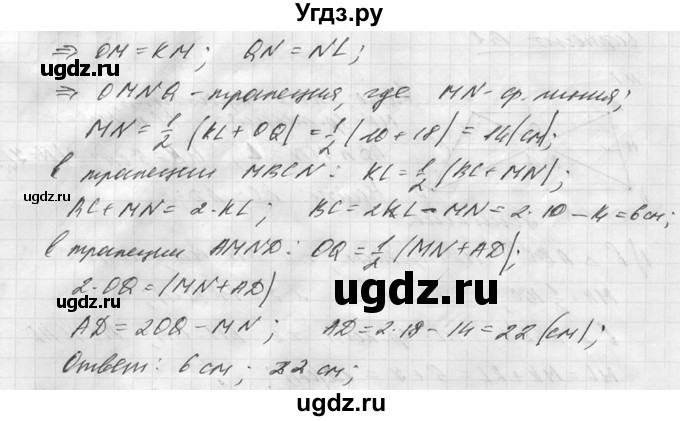 Угдз.ру
⇒ OM = KM; QN = NL;
⇒ OMNQ - трапеция, где MN - ср. линия;
MN = 1/2 (KL + OQ) = 1/2 (10 + 18) = 14 (см);
в трапеции MBCN: KL = 1/2 (BC + MN);
BC + MN = 2·KL; BC = 2KL - MN = 2·10 - 14 = 6 см;
в трапеции AMND: OQ = 1/2 (MN + AD);
2·OQ = (MN + AD)
AD = 2OQ - MN; AD = 2·18 - 14 = 22 (см);
Ответ: 6 см; 22 см;
ugdz.ru
ugdz.ru
ugdz.ru
ugdz.ru
ugdz.ru
ugdz.ru
ugdz.ru
ugdz.ru